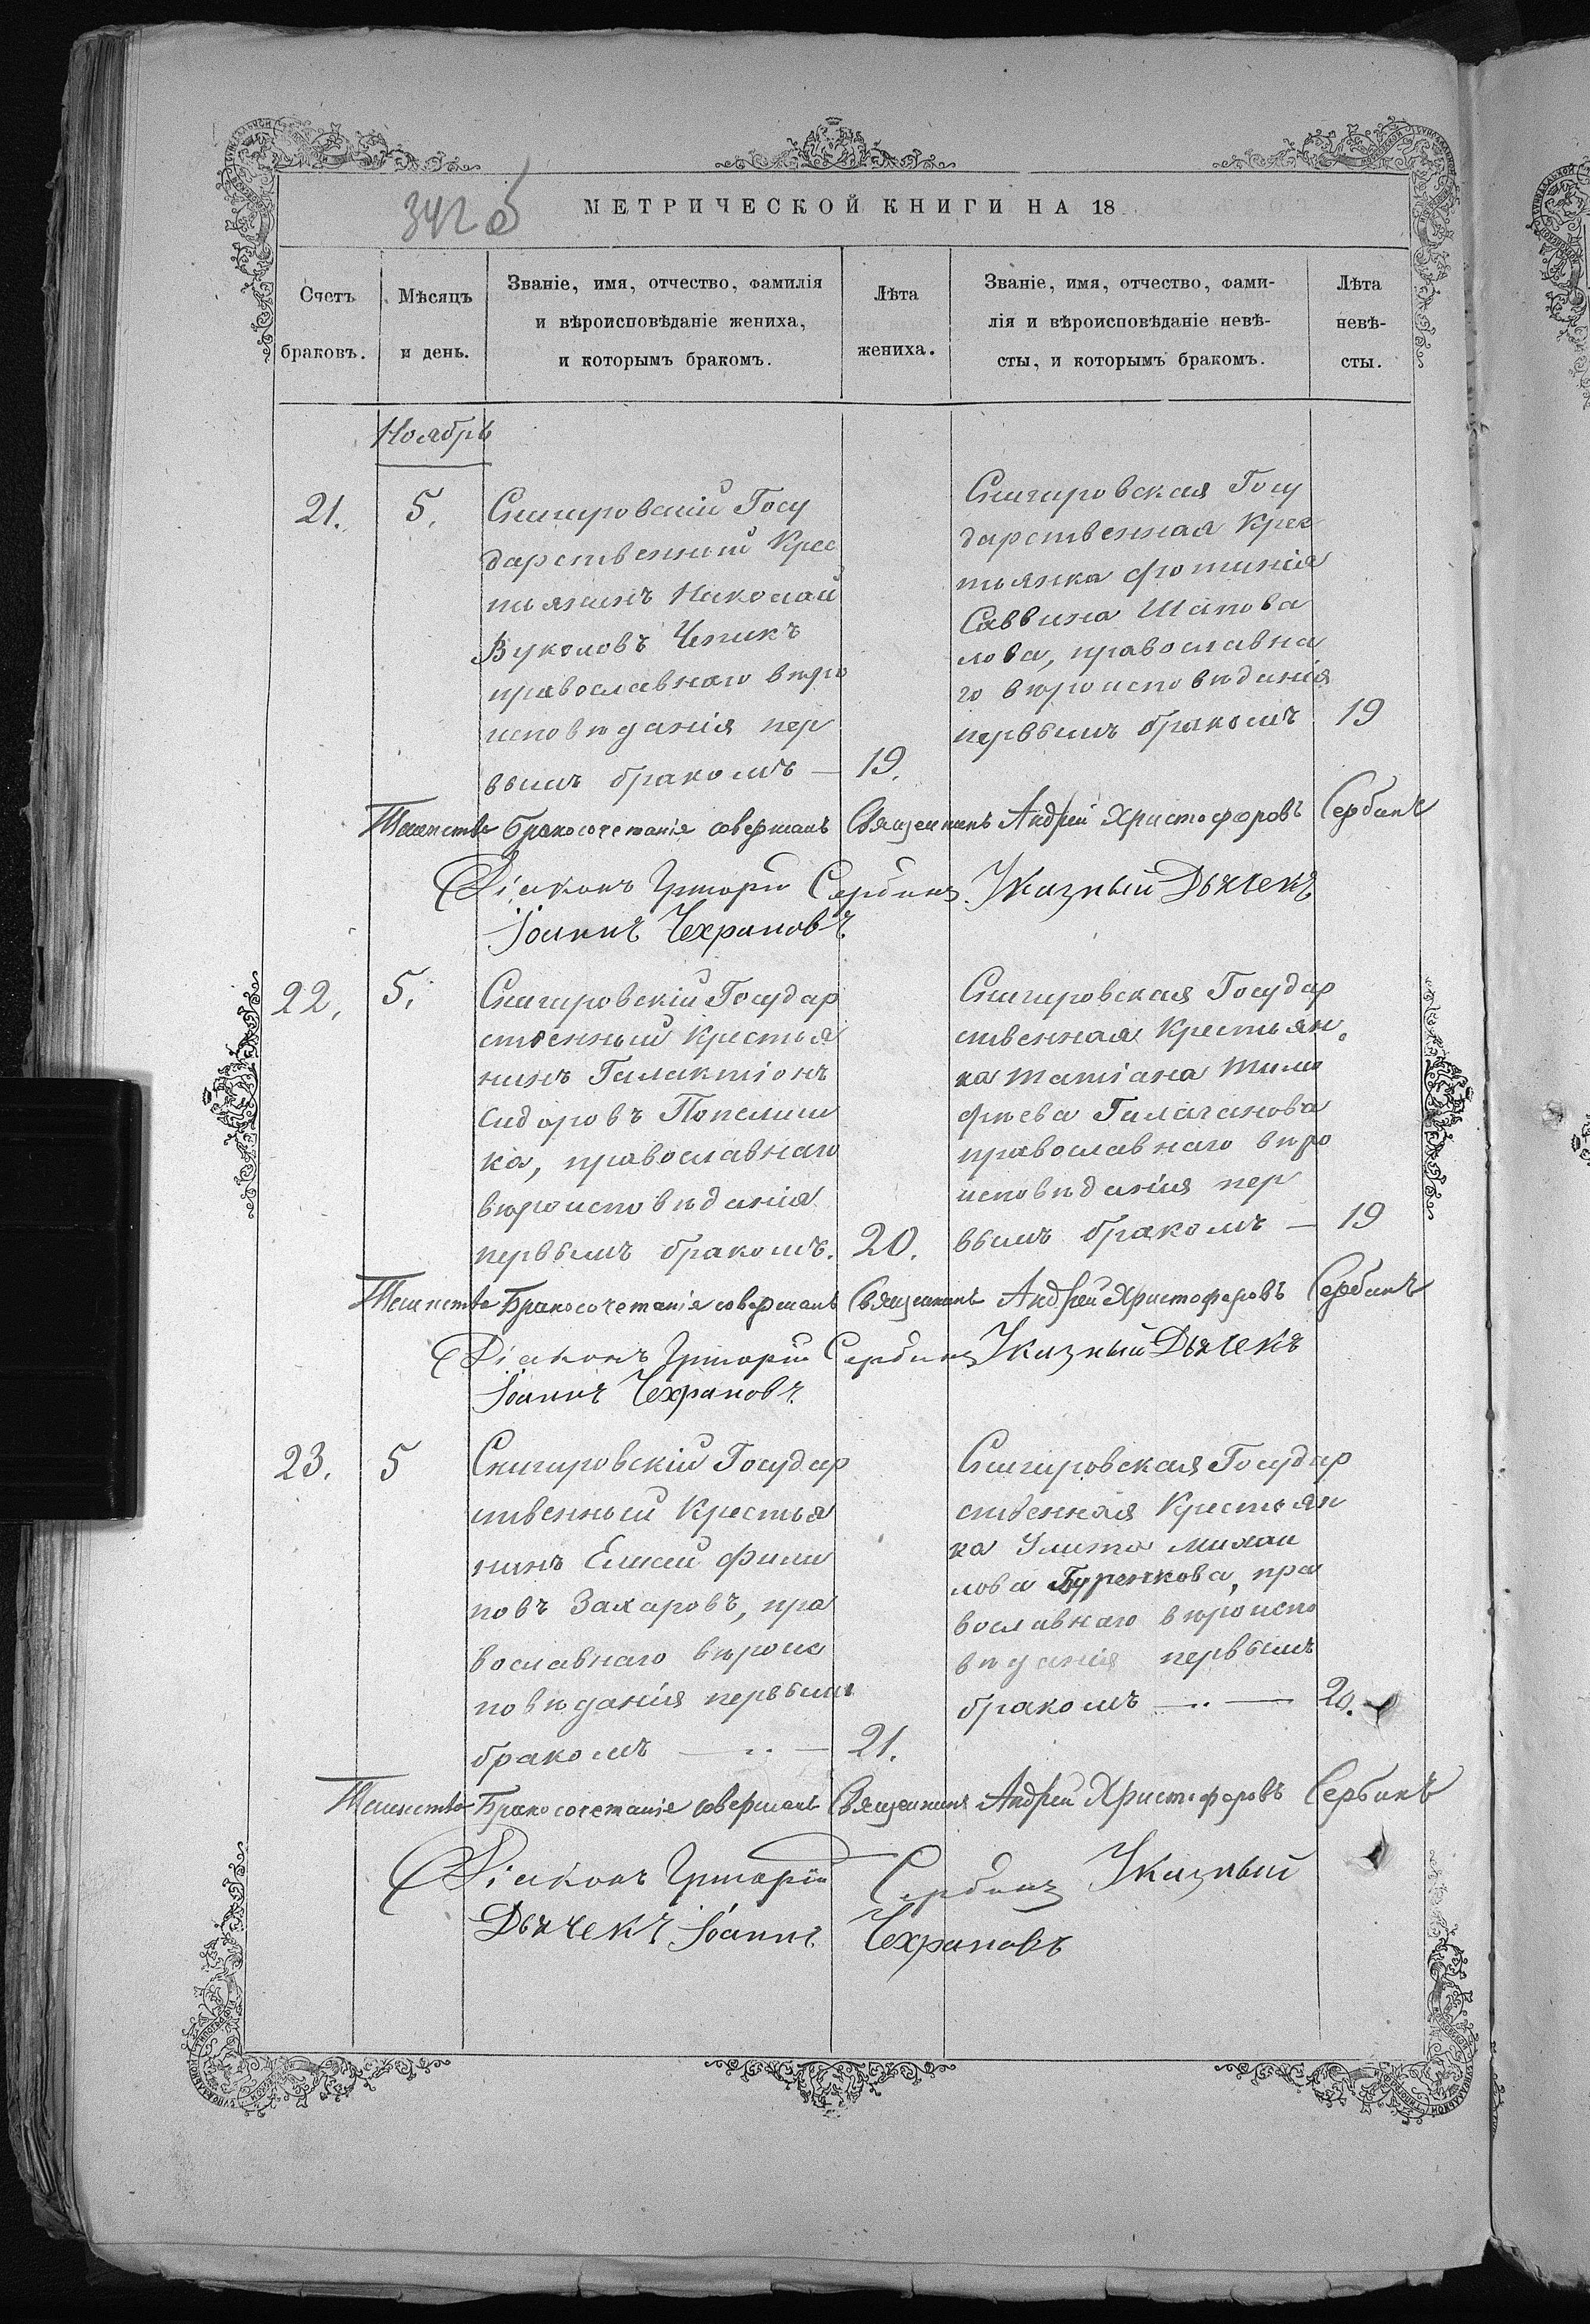 342 об
МЕТРИЧЕСКОЙ КНИГИ НА 18
Счетъ браковъ.
Мѣсяцъ и день.
Званіе, имя, отчество, фамилія
и вѣроисповѣданіе жениха,
и которымъ бракомъ.
Лѣта жениха.
Званіе, имя, отчество, фами-
лія и вѣроисповѣданіе невѣ-
сты, и которымъ бракомъ.
Лѣта невѣ-
сты.
Ноябрь
21. 5.
Снигировскій Госу
дарственный Крес
тьянинъ Николай
Вуколовъ Чепикъ
православнаго вѣро
исповѣданія пер
вымъ бракомъ — 19.
Снигировская Госу
дарственная Крес
тьянка Фотинія
Саввина Шапова
лова, православна
го вѣроисповѣданія
первымъ бракомъ 19
Таинство бракосочетанія совершалъ Священникъ Андрей Христофоровъ Сербинъ
Діаконъ Григорій Сербинъ Указный Дьячекъ
Іоаннъ Чехрановъ
22. 5.
Снигировскій Государ
ственный Крестья
нинъ Галактіонъ
Сидоровъ
ка, православнаго
вѣроисповѣданія
первымъ бракомъ. 20.
Снигировская Государ
ственная Крестьян
ка Татіана Тимо
фѣева Галаганова
православнаго вѣро
исповѣданія пер
вымъ бракомъ — 19
Таинство Бракосочетанія совершалъ Священникъ Андрей Христофоровъ Сербинъ
Діаконъ Григорій Сербинъ Указный Дьячекъ
Іоаннъ Чехрановъ
23. 5
Снигировскій Государ
ственный Крестья
нинъ Елисей Фили
повъ Захаровъ, пра
вославнаго вѣроис
повѣданія первымъ
бракомъ — 21.
Снигировская Государ
ственная Крестьян
ка Улита Михаи
лова Буренкова, пра
вославнаго вѣроиспо
вѣданія первымъ
бракомъ — 20.
Таинство Бракосочетанія совершалъ Священникъ Андрей Христофоровъ Сербинъ
Діаконъ Григорій Сербинъ Указный
Дьячекъ Іоаннъ Чехрановъ